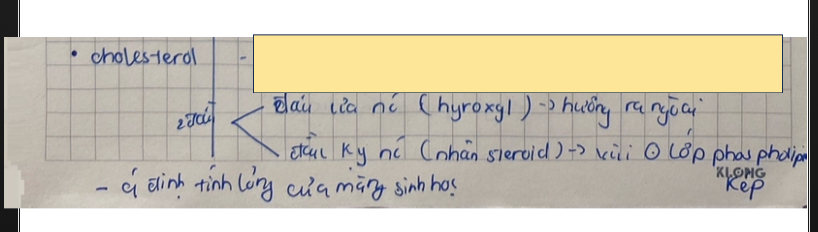 • cholesterol -
2 đầu
đầu ưa nc (hyroxyl) -> hướng ra ngoài
đầu kỵ nc (nhân steroid) -> vùi ⊙ lớp phospholipi
KLONG
kép
- ổ định tính lỏng của màng sinh học